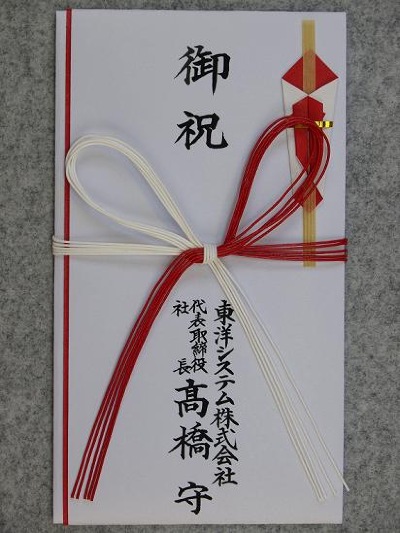 御祝
東洋システム株式会社
代表取締役
社長
髙橋守